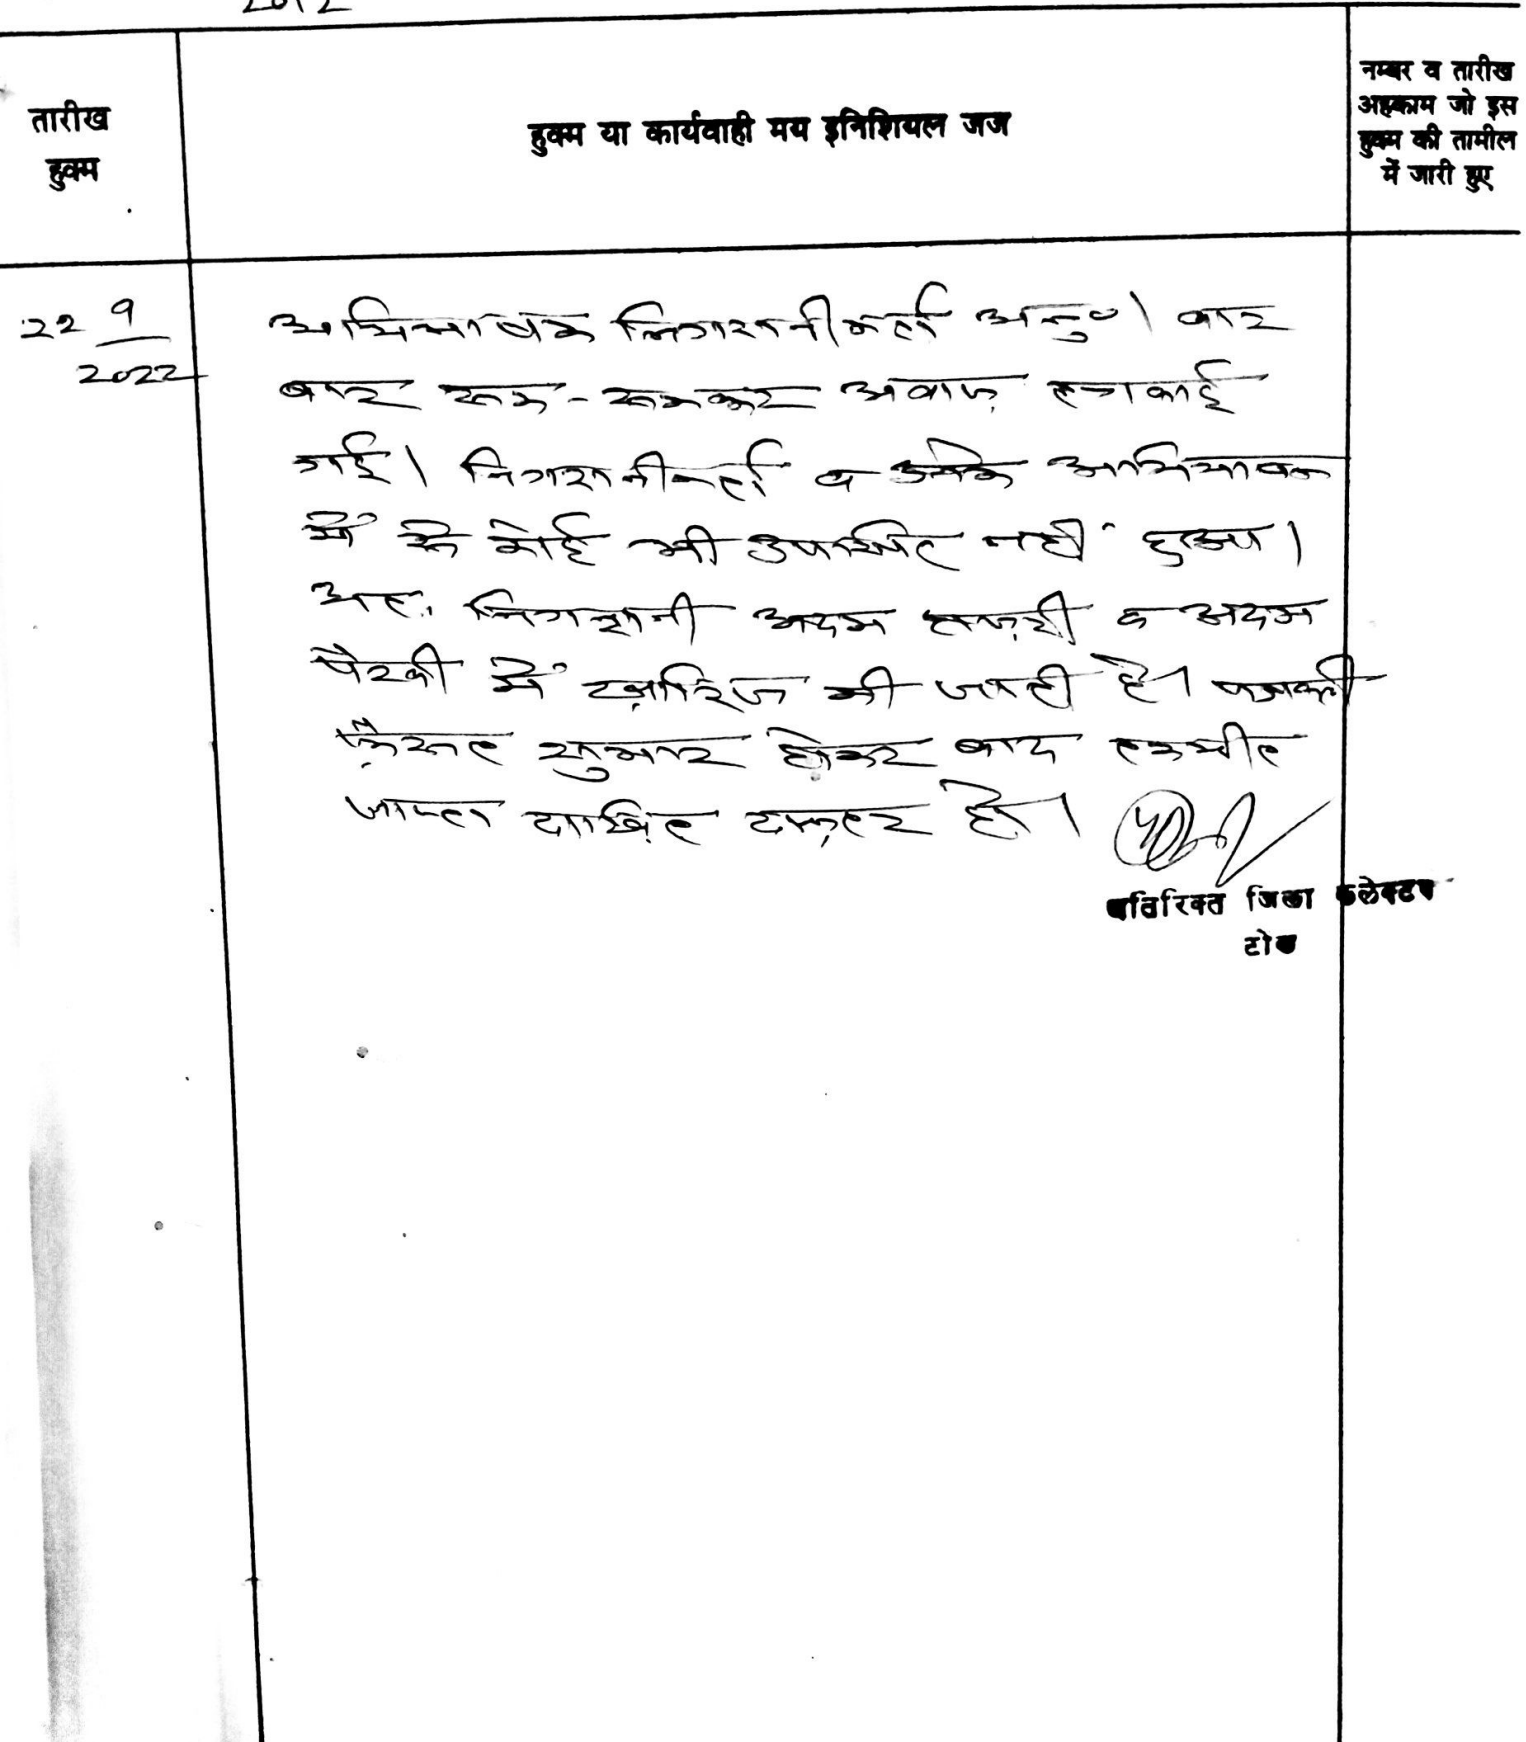 2012
तारीख
हुक्म
हुक्म या कार्यवाही मय इनिशियल जज
नम्बर व तारीख
अहकाम जो इस
हुक्म की तामील
में जारी हुए
22 9
2022
अभिभाषक निगरानीकर्ता अनु०। बार
बार रूक-रूककर आवाज़ लगवाई
गई। निगरानीकर्ता व उनके अभिभाषक
में से कोई भी उपस्थित नहीं हुआ।
अतः निगरानी अदम हाज़री व अदम
पैरवी में खारिज की जाती है। पत्रावली
फ़ैसल शुमार होकर बाद तकमील
जाप्ता दाखिल दफ़्तर हो।
अतिरिक्त जिला कलेक्टर
टोंक